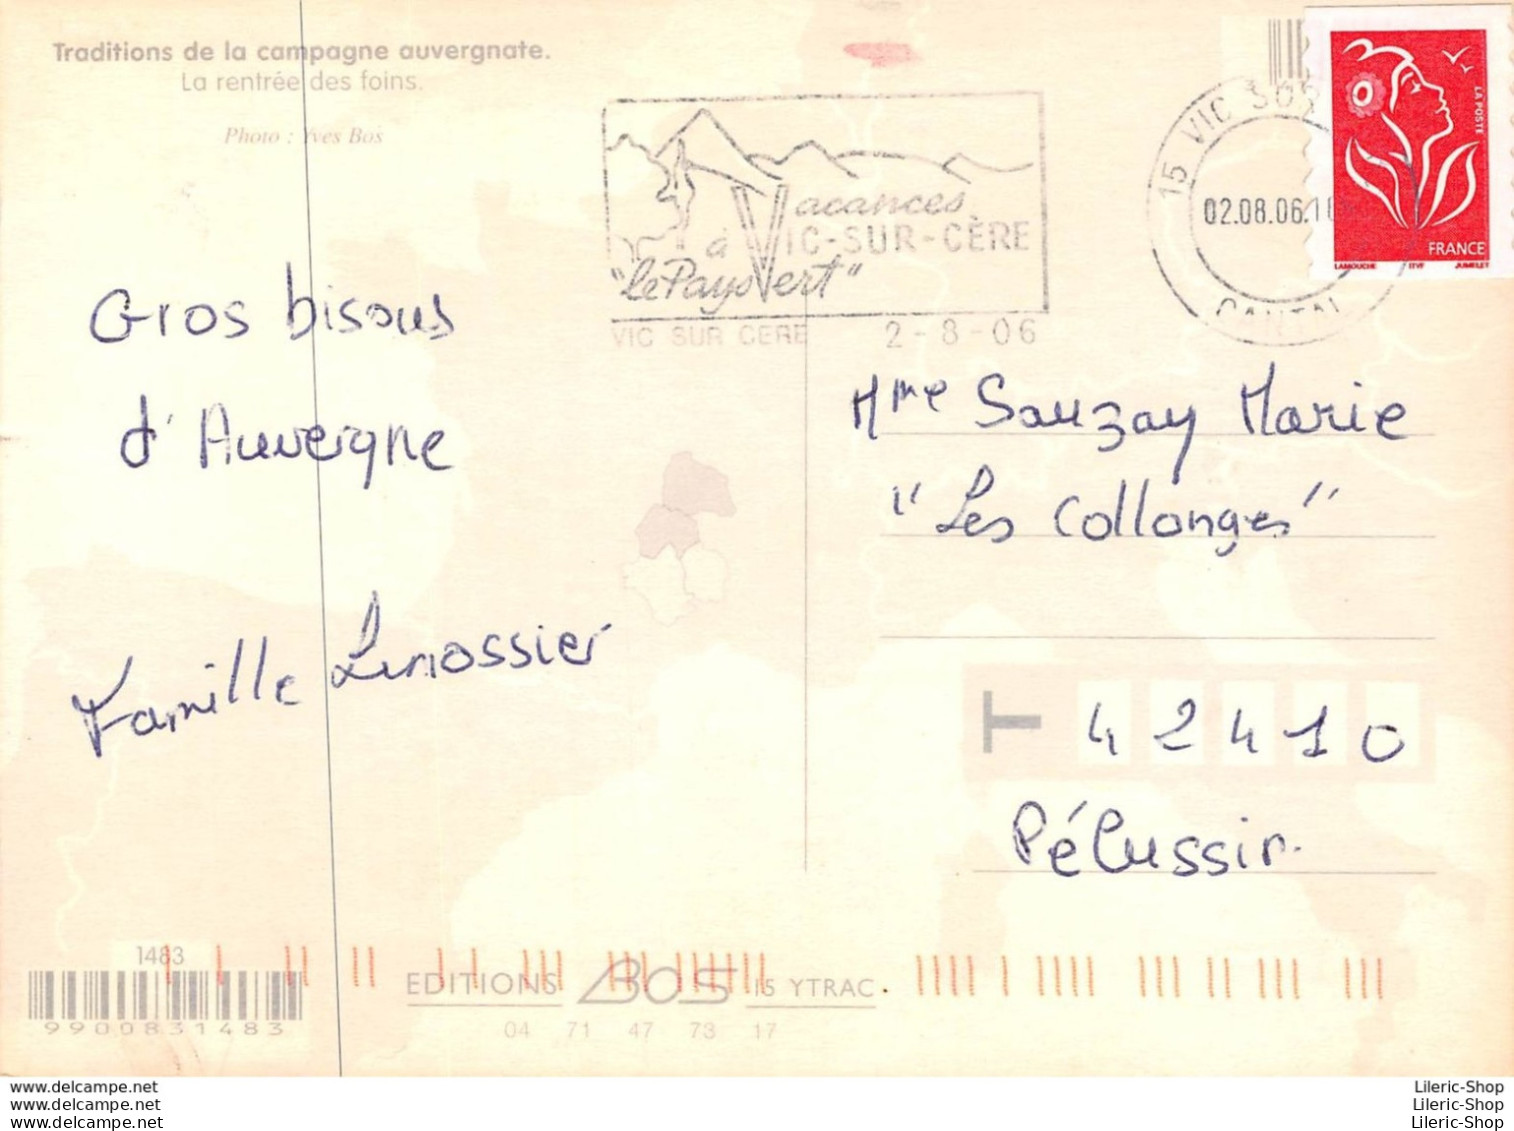 Traditions de la campagne auvergnate.
La rentrée des foins.
Photo : Yves Bos
Vacances
à VIC-SUR-CÈRE
"le Pays Vert"
VIC SUR CERE 2-8-06
15 VIC SUR
02.08.06.
CANTAL
LA POSTE
FRANCE
LAMOUCHE ITVF JUMELET
Gros bisous
d'Auvergne
Famille Linossier
Mme Sauzay Marie
"Les Collonges"
T 42410
Pélussin
1483
9900831483
EDITIONS BOS 15 YTRAC
04 71 47 73 17
www.delcampe.net
www.delcampe.net
www.delcampe.net
Lileric-Shop
Lileric-Shop
Lileric-Shop